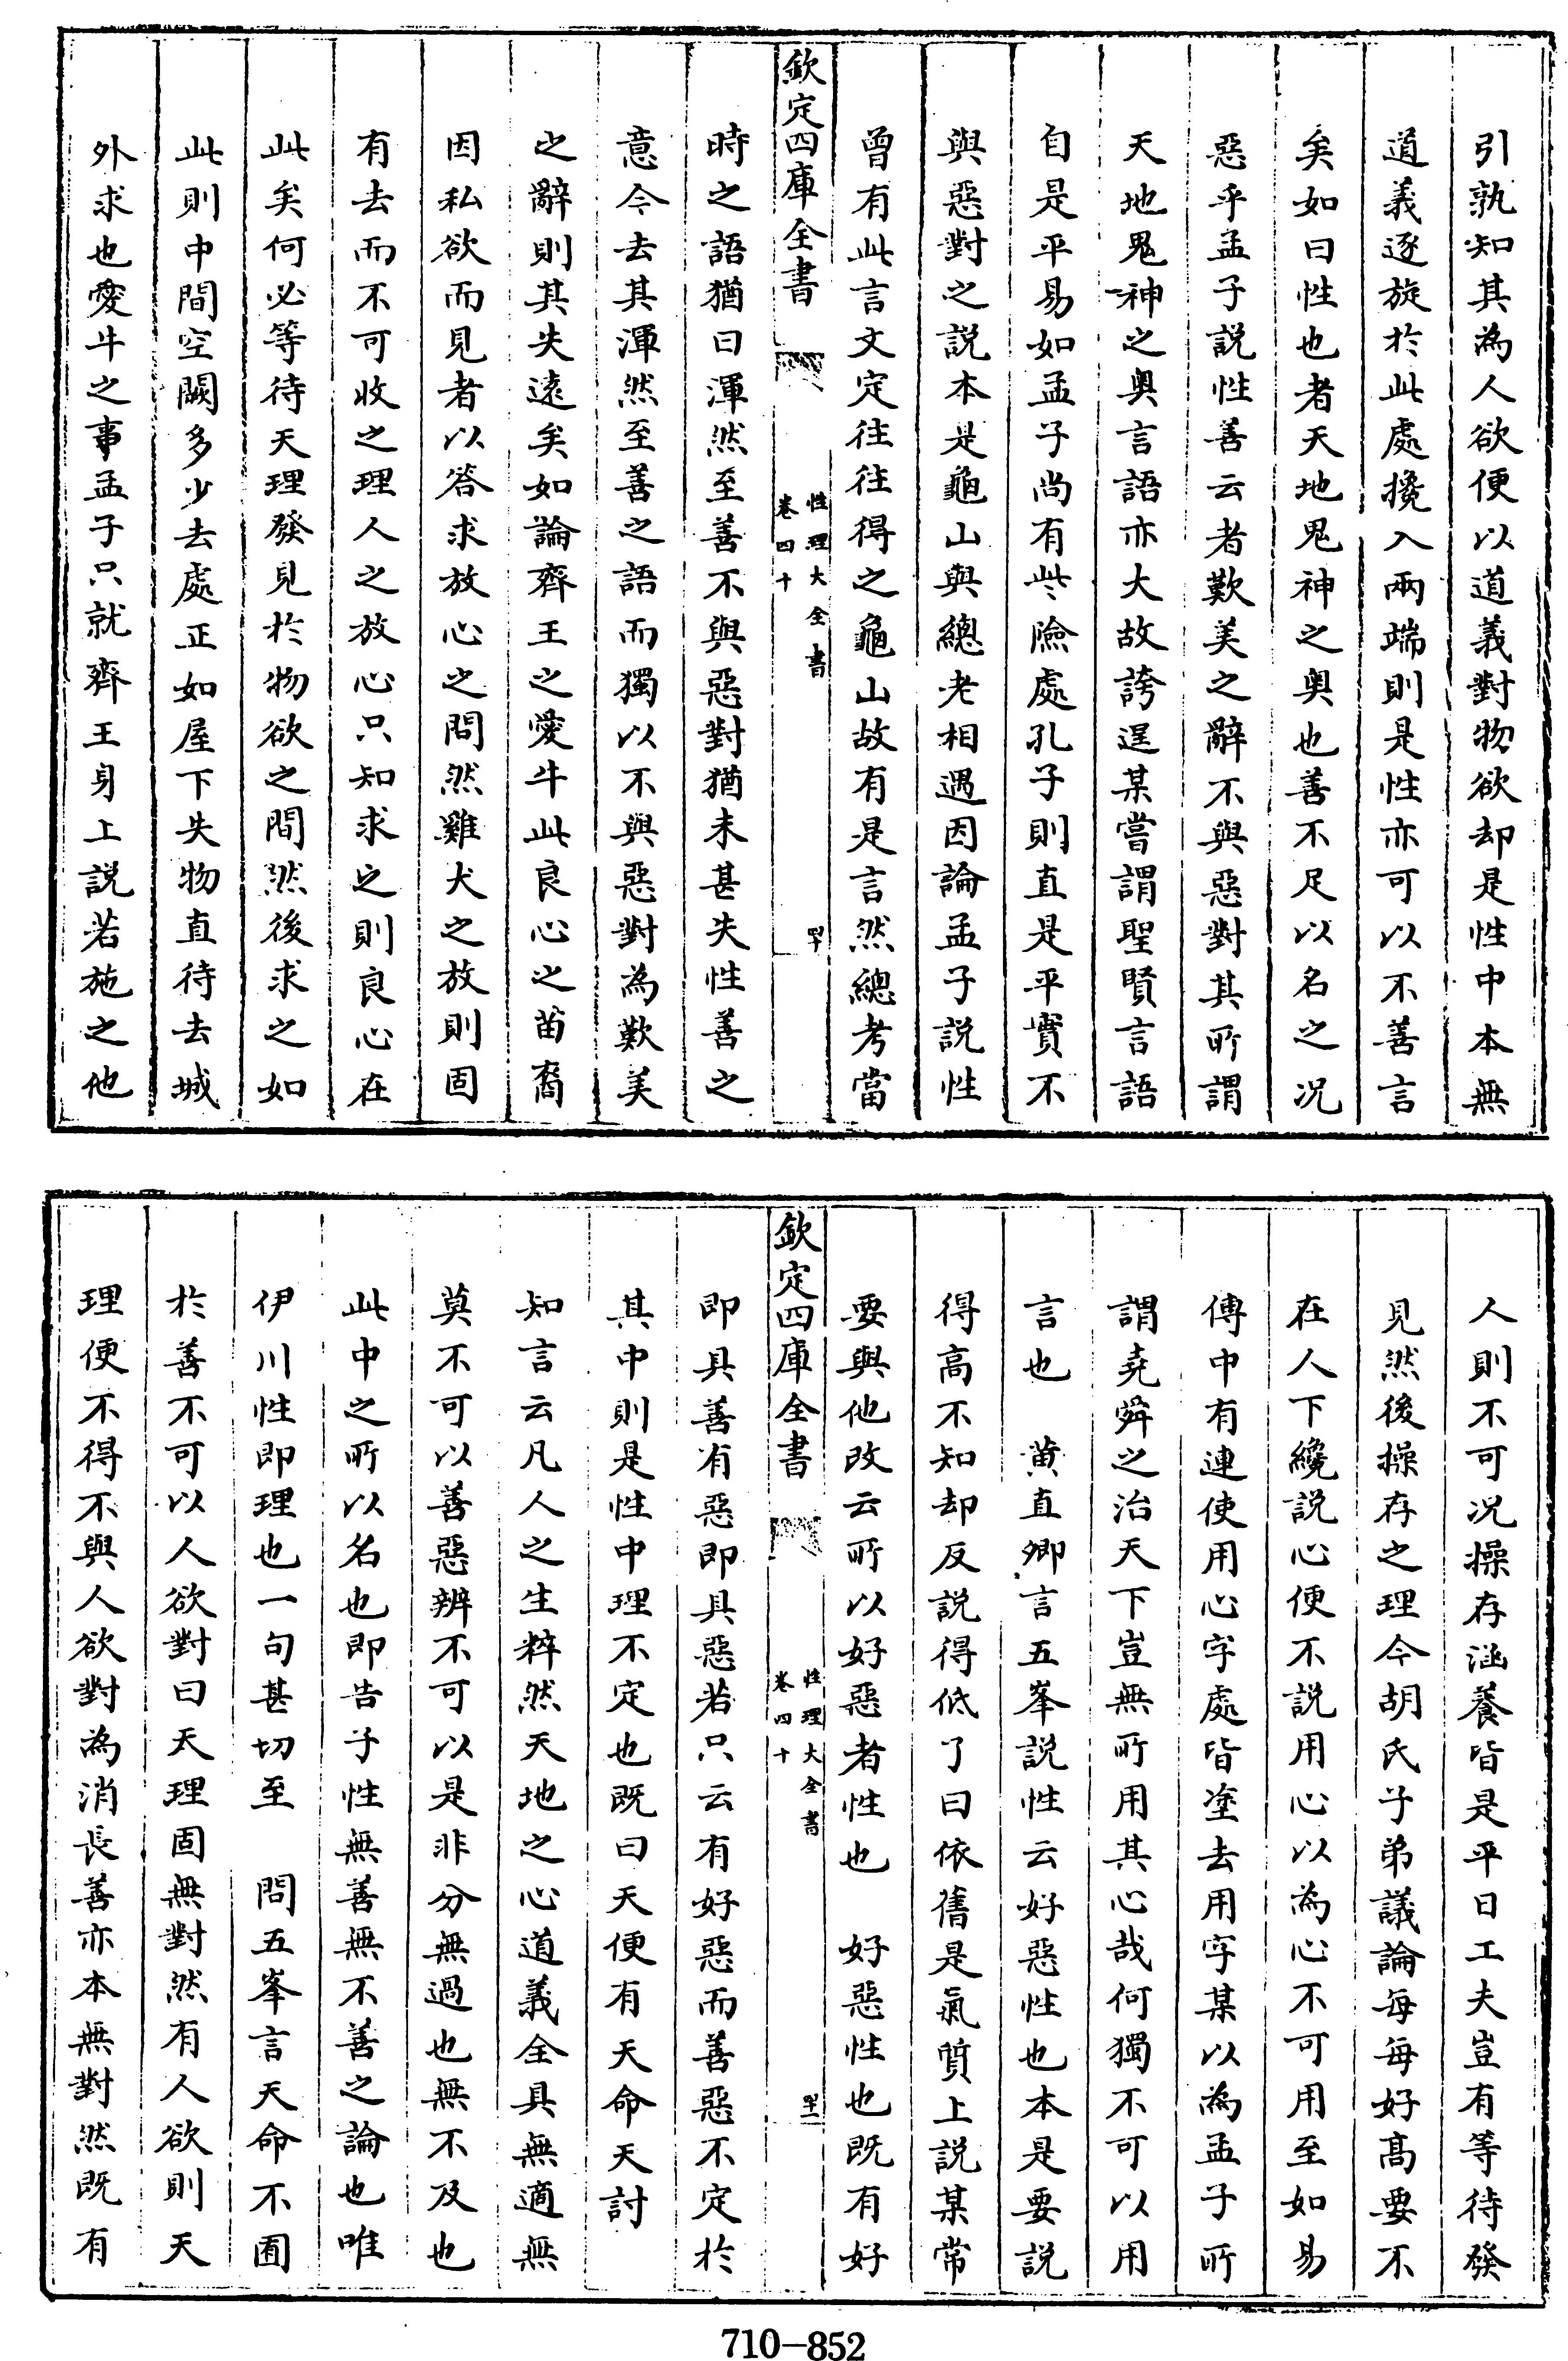 引孰知其為人欲便以道義對物欲却是性中本無
道義逐旋於此處攙入兩端則是性亦可以不善言
矣如曰性也者天地鬼神之奥也善不足以名之况
惡乎孟子説性善云者歎美之辭不與惡對其所謂
天地鬼神之奥言語亦大故誇逞某嘗謂聖賢言語
自是平易如孟子尚有些險處孔子則直是平實不
與惡對之説本是龜山與總老相遇因論孟子説性
曾有此言文定往往得之龜山故有是言然總考當
欽定四庫全書
性理大全書
卷四十
四十
時之語猶曰渾然至善不與惡對猶未甚失性善之
意今去其渾然至善之語而獨以不與惡對為歎美
之辭則其失遠矣如論齊王之愛牛此良心之苗裔
因私欲而見者以答求放心之問然雞犬之放則固
有去而不可收之理人之放心只知求之則良心在
此矣何必等待天理發見於物欲之間然後求之如
此則中間空闕多少去處正如屋下失物直待去城
外求也愛牛之事孟子只就齊王身上説若施之他
人則不可况操存涵養皆是平日工夫豈有等待發
見然後操存之理今胡氏子弟議論每每好髙要不
在人下纔説心便不説用心以為心不可用至如易
傳中有連使用心字處皆塗去用字某以為孟子所
謂堯舜之治天下豈無所用其心哉何獨不可以用
言也　黄直卿言五峯説性云好惡性也本是要説
得高不知却反説得低了曰依舊是氣質上説某常
要與他改云所以好惡者性也　好惡性也既有好
欽定四庫全書
性理大全書
卷四十
四十一
即具善有惡即具惡若只云有好惡而善惡不定於
其中則是性中理不定也既曰天便有天命天討
知言云凡人之生粹然天地之心道義全具無適無
莫不可以善惡辨不可以是非分無過也無不及也
此中之所以名也即告子性無善無不善之論也唯
伊川性即理也一句甚切至　問五峯言天命不囿
於善不可以人欲對曰天理固無對然有人欲則天
理便不得不與人欲對為消長善亦本無對然既有
710-852